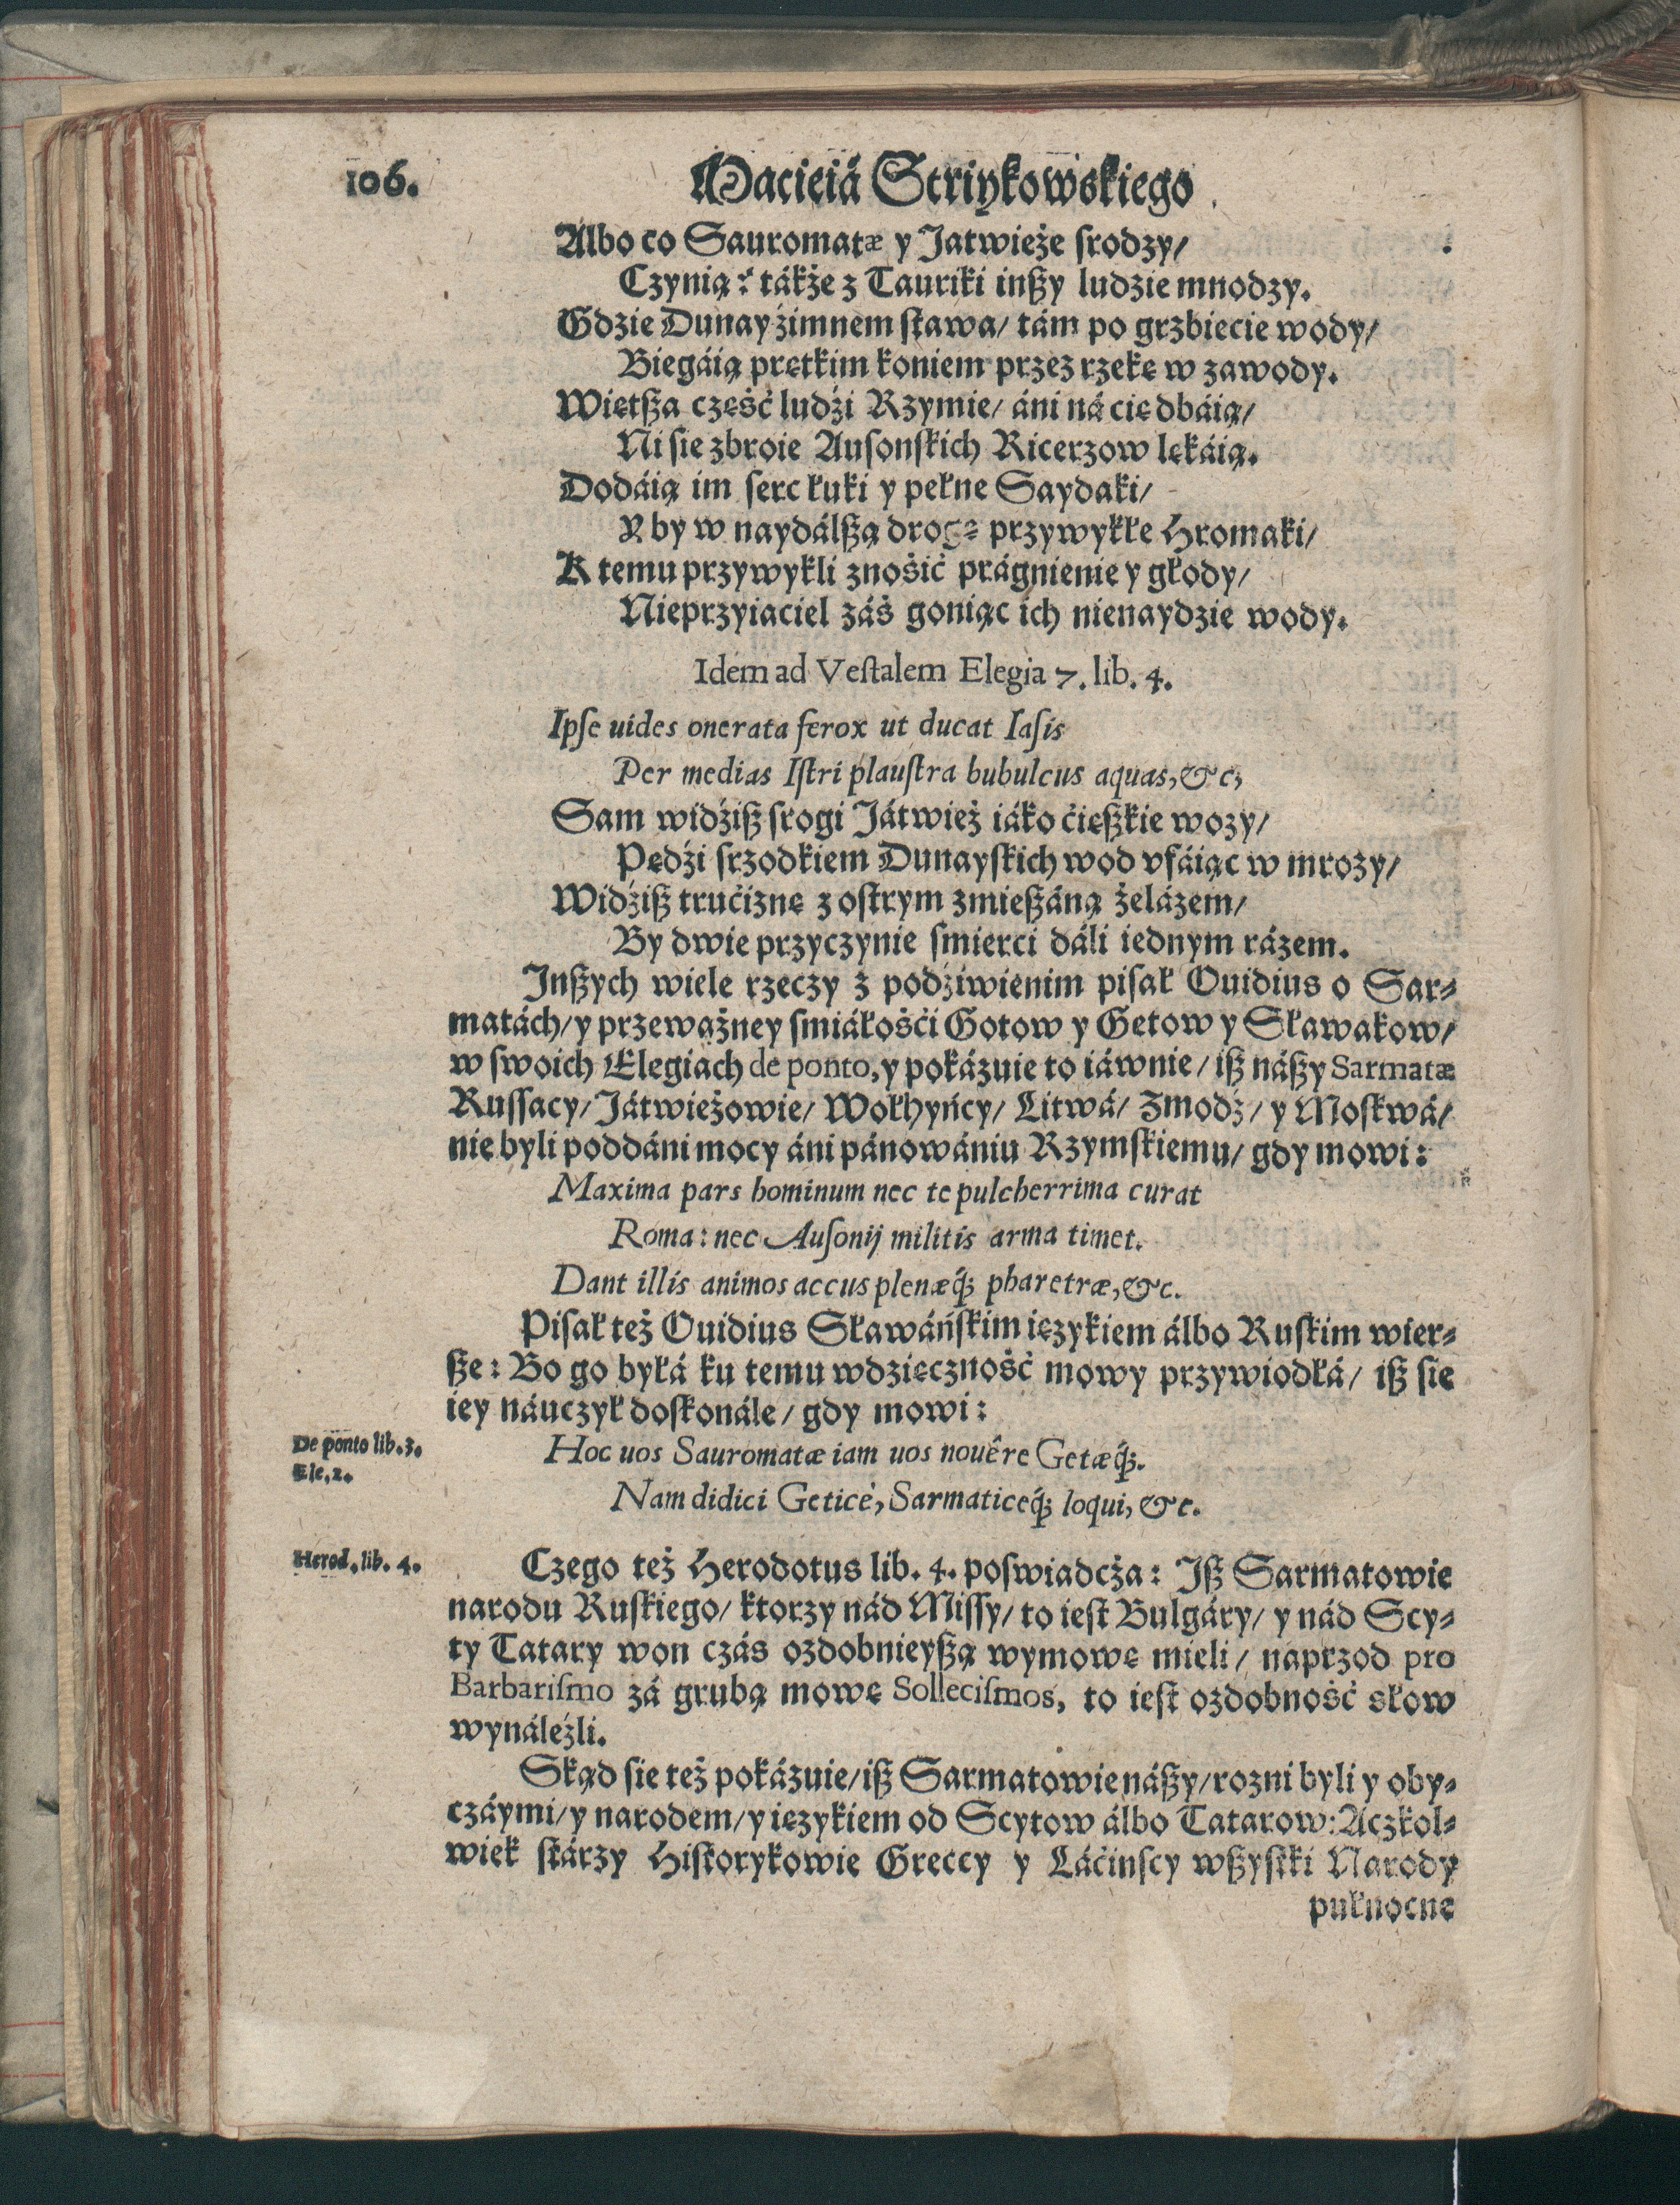 106.
Macieiá Striykowskiego
Albo co Sauromatæ y Jatwieże srodzy/
Czynią: tákże z Tauriki inßy ludzie mnodzy.
Gdzie Dunay zimnem stawa/ tám po grzbiecie wody/
Biegáią prętkim koniem przez rzekę w zawody.
Więtßa część ludźi Rzymie/ áni ná cię dbáią/
Ni sie zbroie Ausonskich Ricerzow lękáią.
Dodáią im serc łuki y pełne Saydaki/
Y by w naydálßą drogę przywykłe Hromaki/
K temu przywykli znośić prágnienie y głody/
Nieprzyiaciel záś goniąc ich nienaydzie wody.
Idem ad Veſtalem Elegia 7. lib. 4.
Ipſe uides onerata ferox ut ducat Iaſis
Per medias Iſtri plauſtra bubulcus aquas, &c,
Sam widźiß srogi Játwież iáko ćięßkie wozy/
Pędźi srzodkiem Dunayskich wod vfáiąc w mrozy/
Widźiß trućiznę z ostrym zmießáną żelázem/
By dwie przyczynie smierci dáli iednym rázem.
Inßych wiele rzeczy z podźiwienim pisał Ouidius o Sar⸗
matách/ y przeważney smiáłośći Gotow y Getow y Sławakow/
w swoich Elegiach de ponto, y pokázuie to iáwnie/ iß náßy Sarmatæ
Russacy/ Játwieżowie/ Wołhyńcy/ Litwá/ Zmodź/ y Moskwá/
nie byli poddáni mocy áni pánowániu Rzymskiemu/ gdy mowi:
Maxima pars hominum nec te pulcherrima curat
Roma: nec Auſonij militis arma timet.
Dant illis animos accus plenæq́; pharetræ, &c.
Pisał też Ouidius Sławáńskim ięzykiem álbo Ruskim wier⸗
ße: Bo go byłá ku temu wdzięczność mowy przywiodłá/ iß sie
iey náuczył doskonále/ gdy mowi:
De ponto lib. 3.
Ele, 2.
Hoc uos Sauromatæ iam uos nouêre Getæq́;.
Nam didici Geticè, Sarmaticeq́; loqui, &c.
Herod. lib. 4.
Czego też Herodotus lib. 4. poswiadcża: Iß Sarmatowie
narodu Ruskiego/ ktorzy nád Missy/ to iest Bulgáry/ y nád Scy⸗
ty Tatary won czás ozdobnieyßą wymowę mieli/ naprzod pro
Barbariſmo zá grubą mowę Solleciſmos, to iest ozdobność słow
wynáleźli.
Skąd sie też pokázuie/ iß Sarmatowie náßy/ rozni byli y oby⸗
czáymi/ y narodem/ y ięzykiem od Scytow álbo Tatarow: Aczkol⸗
wiek stárzy Historykowie Greccy y Láćinscy wßystki Narody
pułnocne